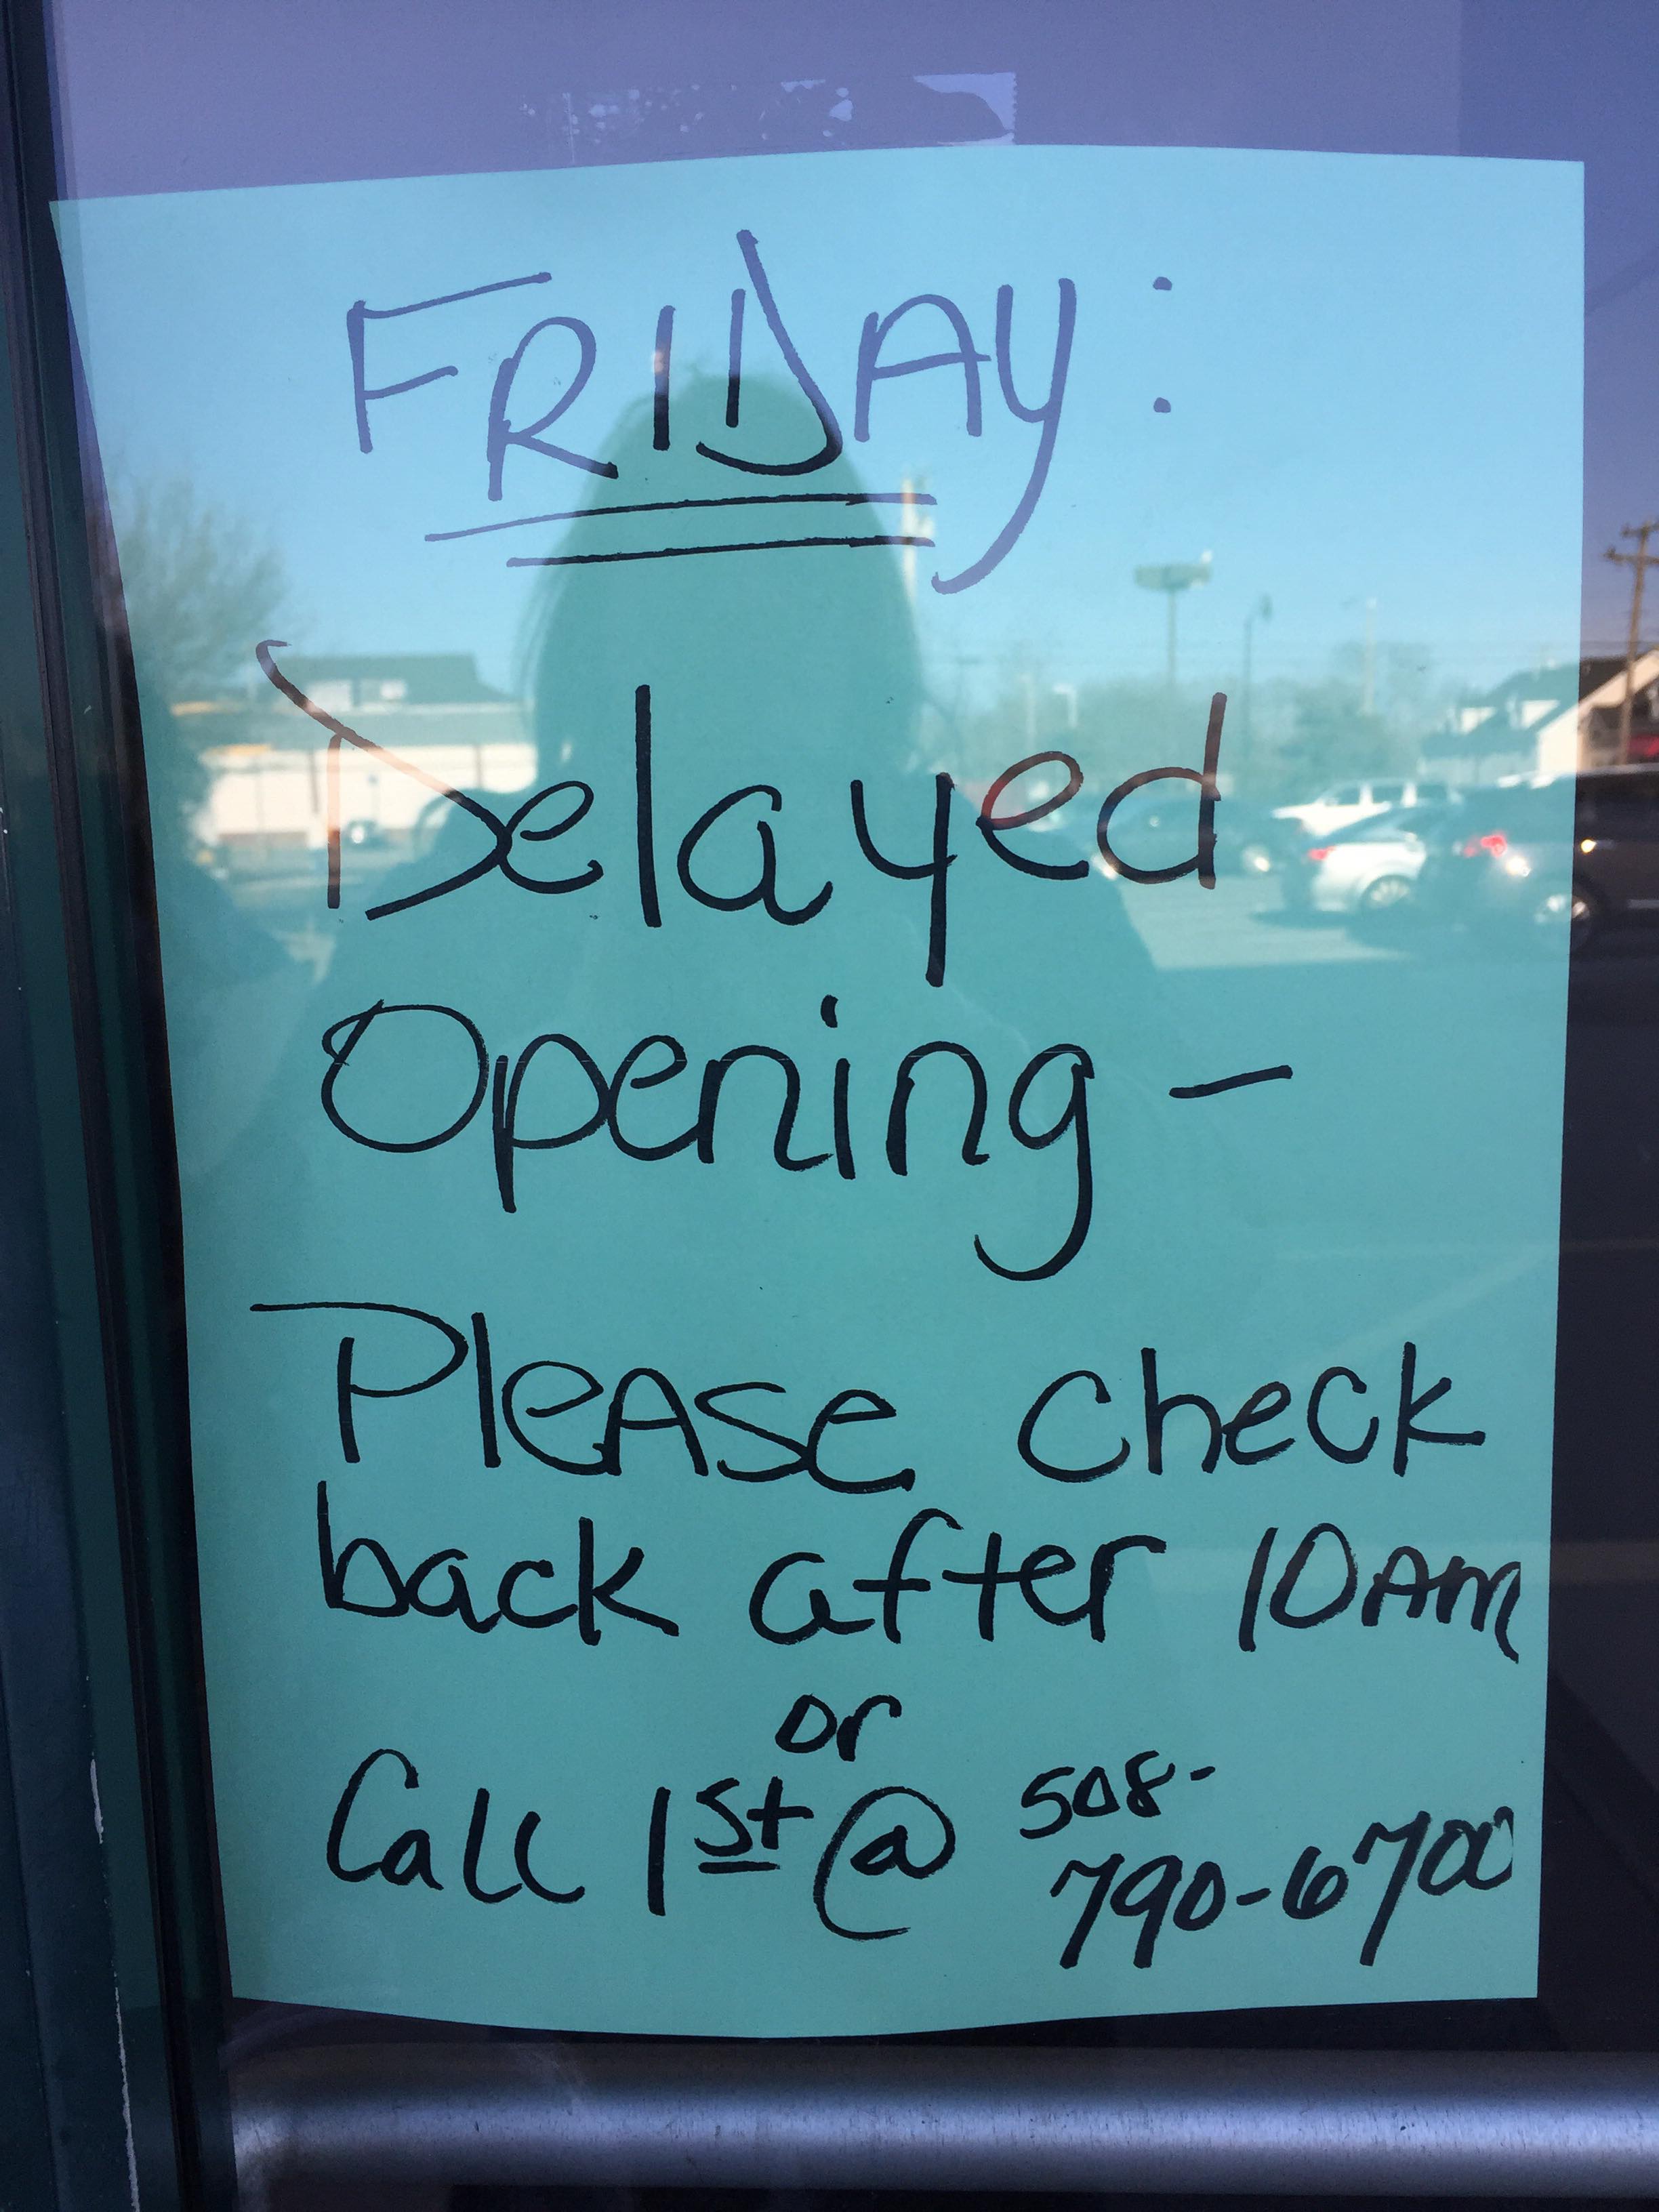 FRIDAY:
Delayed
Opening -
Please check
back after 10AM
or
Call 1st @ 508-
790-6700